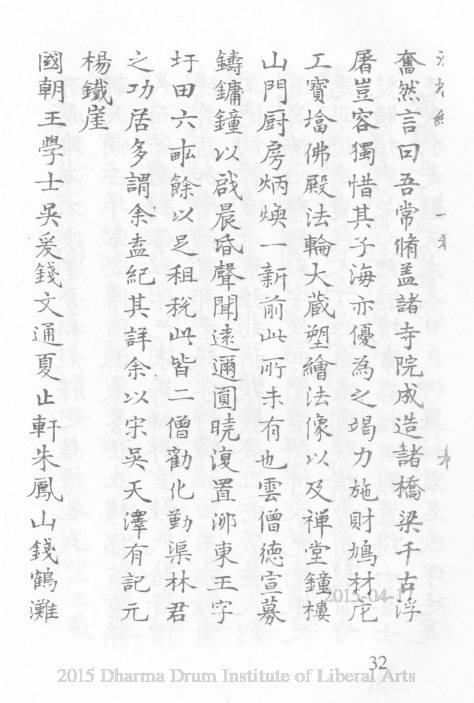 奮然言曰吾常脩盖諸寺院成造諸橋梁千古浮
屠豈容獨惜其子海亦優為之竭力施財鳩材庀
工寳檐佛殿法輪大藏塑繪法像以及禅堂鐘樓
山門厨房炳煥一新前此所未有也雲僧德宣募
鑄鏞鐘以戝晨昏聲聞遠邇圓曉復置泖東王字
圩田六畝餘以足租税此皆二僧勸化勤渠林君
之功居多謂余盍紀其詳余以宋吳天澤有記元
楊鐵崖
國朝王學士吳爰錢文通夏止軒朱鳳山錢鶴灘
2015-04-1
32
2015 Dharma Drum Institute of Liberal Arts